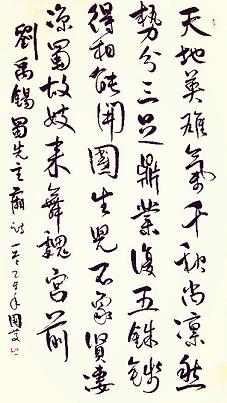 天地英雄氣千秋尚凜然
勢分三足鼎業復五銖錢
得相能開國生兒不象賢淒
涼蜀故妓來舞魏宮前
劉禹錫蜀先主廟詩